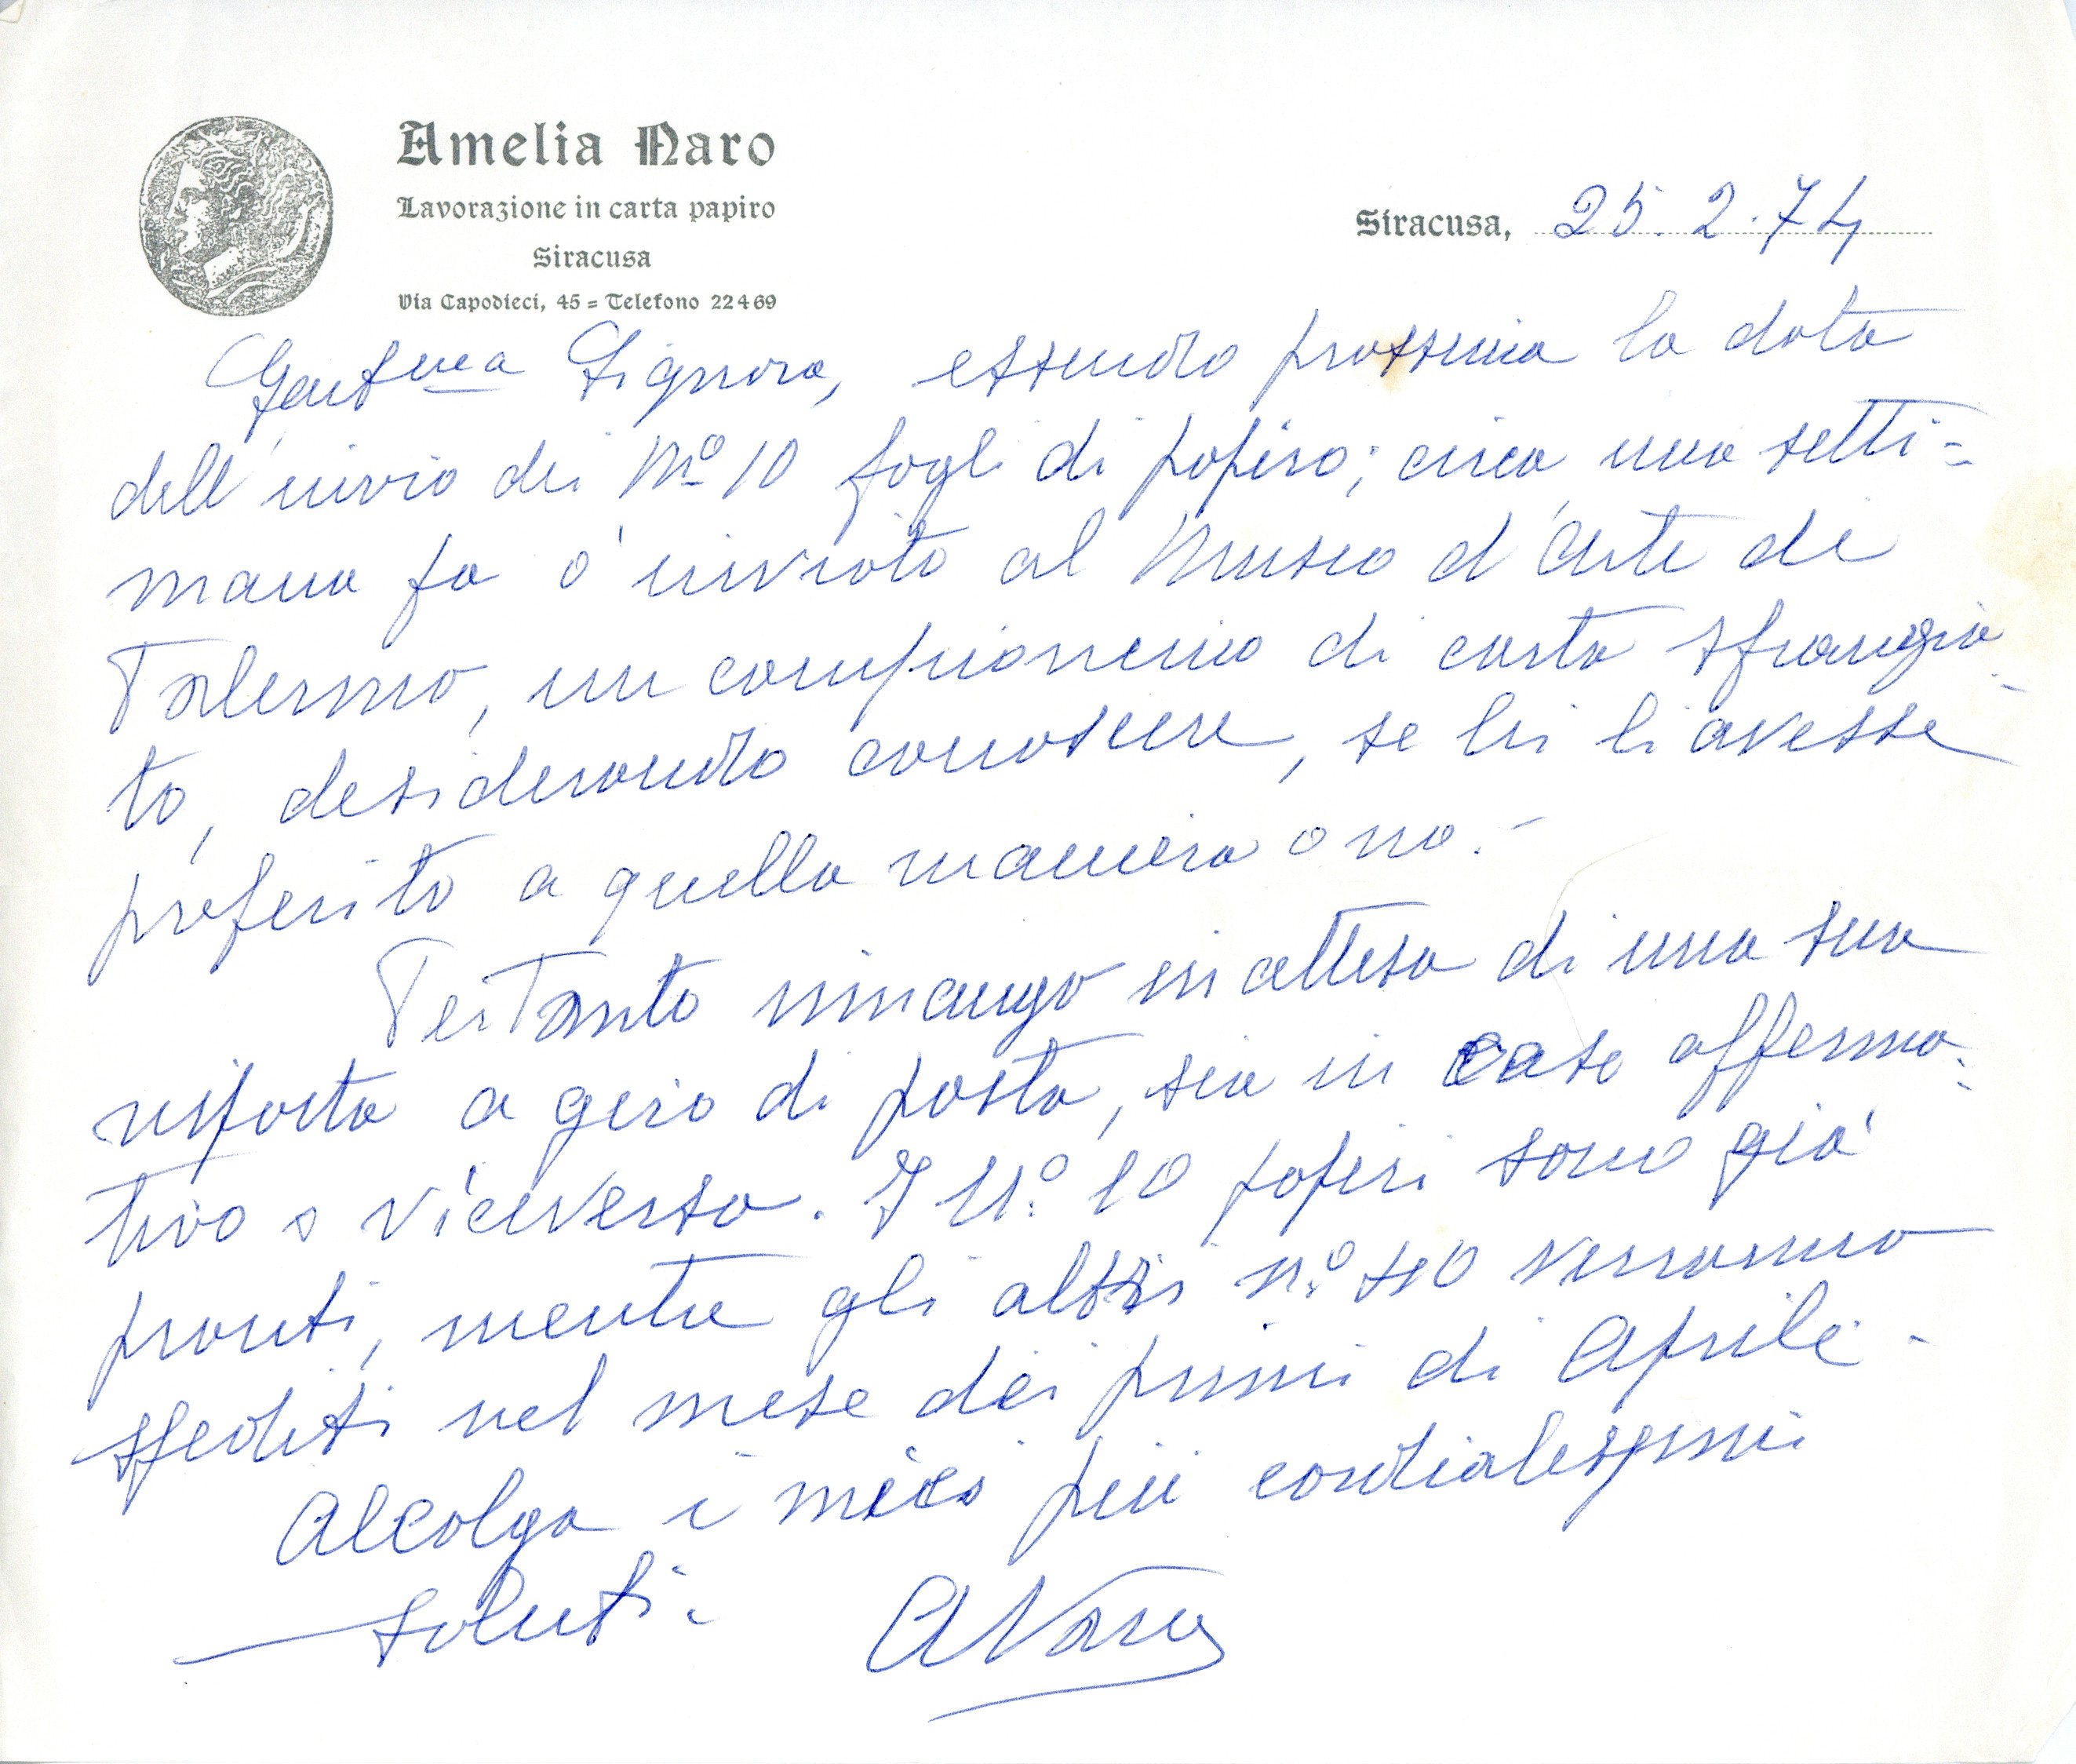 Amelia Naro
Lavorazione in carta papiro
Siracusa
Via Capodieci, 45 = Telefono 22469
Siracusa, 25.2.74
Gent.ma Signora, essendo prossima la data
dell'invio dei Nº 10 fogli di papiro; circa, una setti=
mana fa ò inviato al Museo d'Arte di
Palermo, un campioncino di carta sfrangia-
to, desiderando conoscere, se lei li avesse
preferito a quella maniera o no.-
Pertanto rimango in attesa di una sua
risposta a giro di posta, sia in caso afferma=
tivo o viceversa. I Nº 10 papiri sono già
pronti, mentre gli altri nº 10 verranno
spediti nel mese dei primi di Aprile.-
Accolga i miei più cordialissimi
saluti.-
A Naro